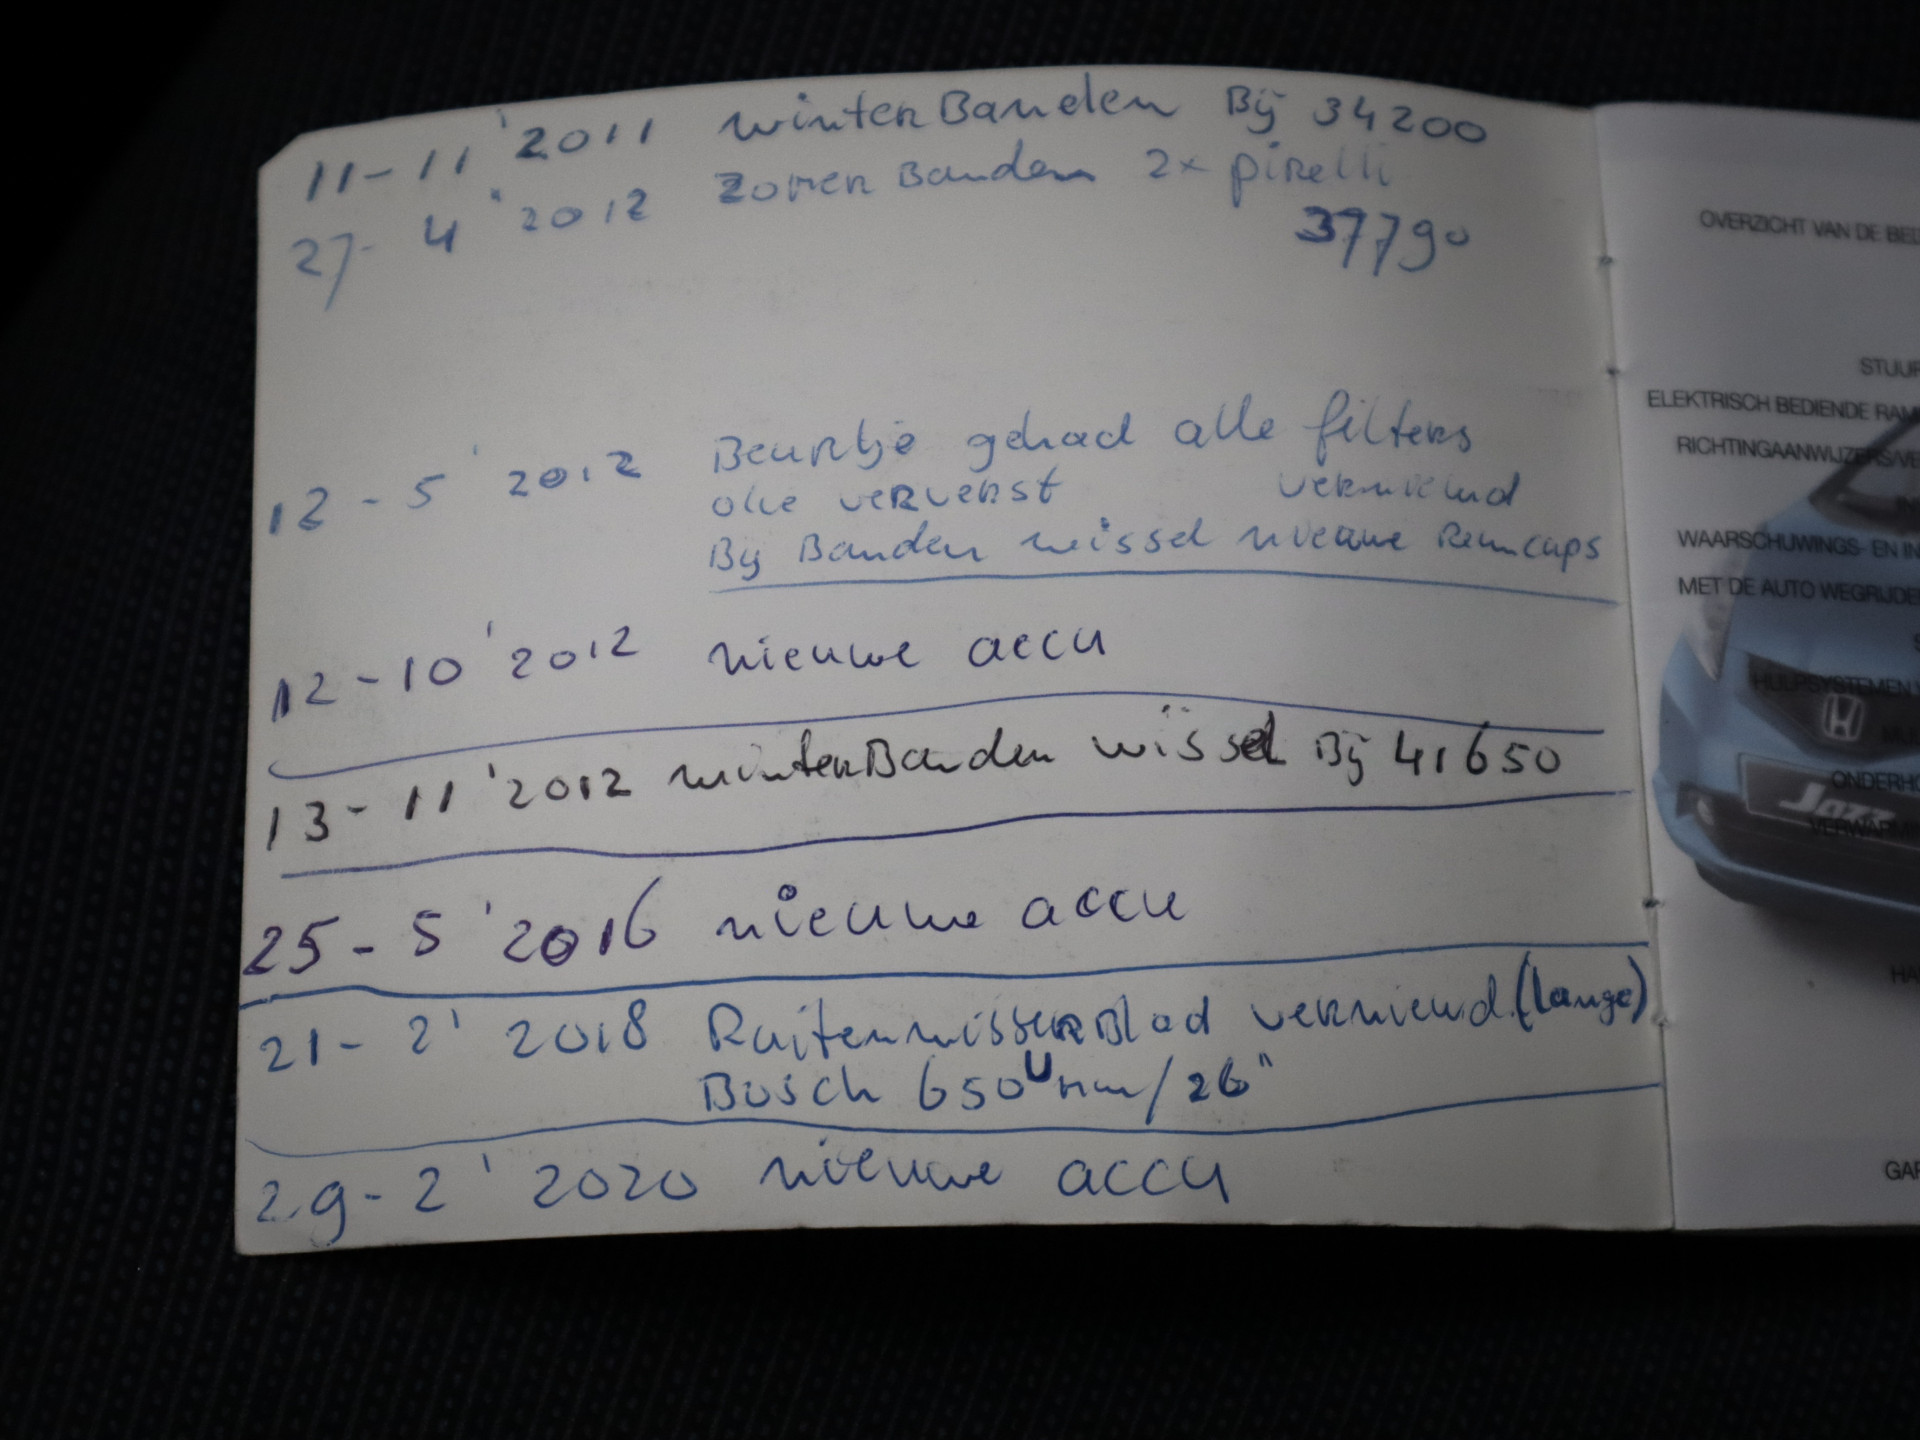 11-11 '2011 winterBanden Bij 34200
27-4 '2012 zomer Banden 2x pirelli
37790
12-5 '2012 Beurtje gehad alle filters
olie ververst vernieuwd
By Banden wissel nieuwe Remcups
12-10 '2012 nieuwe accu
13-11 '2012 winterBanden wissel Bij 41650
25-5 '2016 nieuwe accu
21-2' 2018 RuitenwisserBlad vernieuwd. (Lange)
Bosch 650U mm/26"
29-2 '2020 nieuwe accu
OVERZICHT VAN DE BED
STUUR
ELEKTRISCH BEDIENDE RAM
RICHTINGAANWIJZERS/VE
IN
WAARSCHUWINGS- EN IN
MET DE AUTO WEGRIJDE
S
HULPSYSTEMEN
ONDERHO
Jazz
VERWARM
HA
GAR